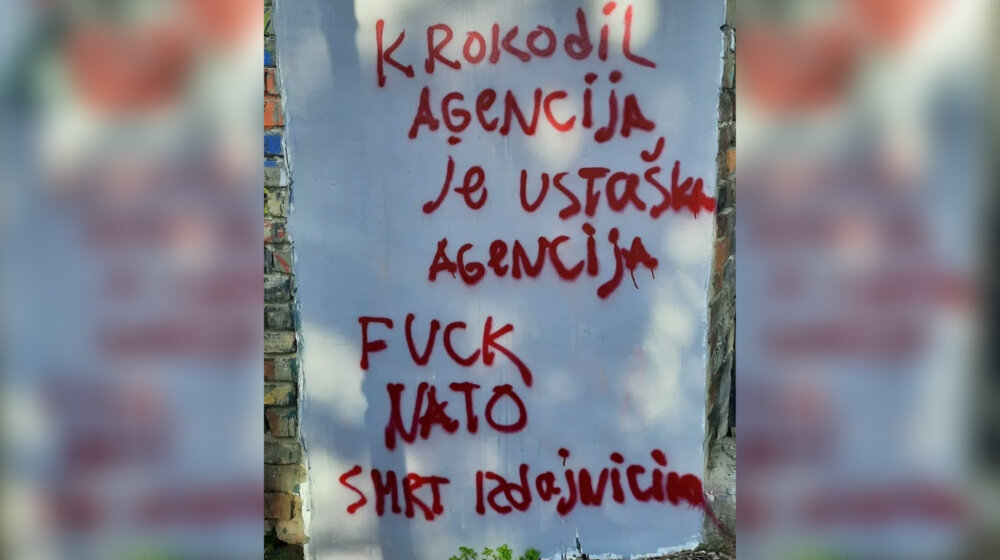 KROKOdiL
AGENCIJA
je USTAŠKA
AGENCIJA
FUCK
NATO
SMRT Izdajnicima